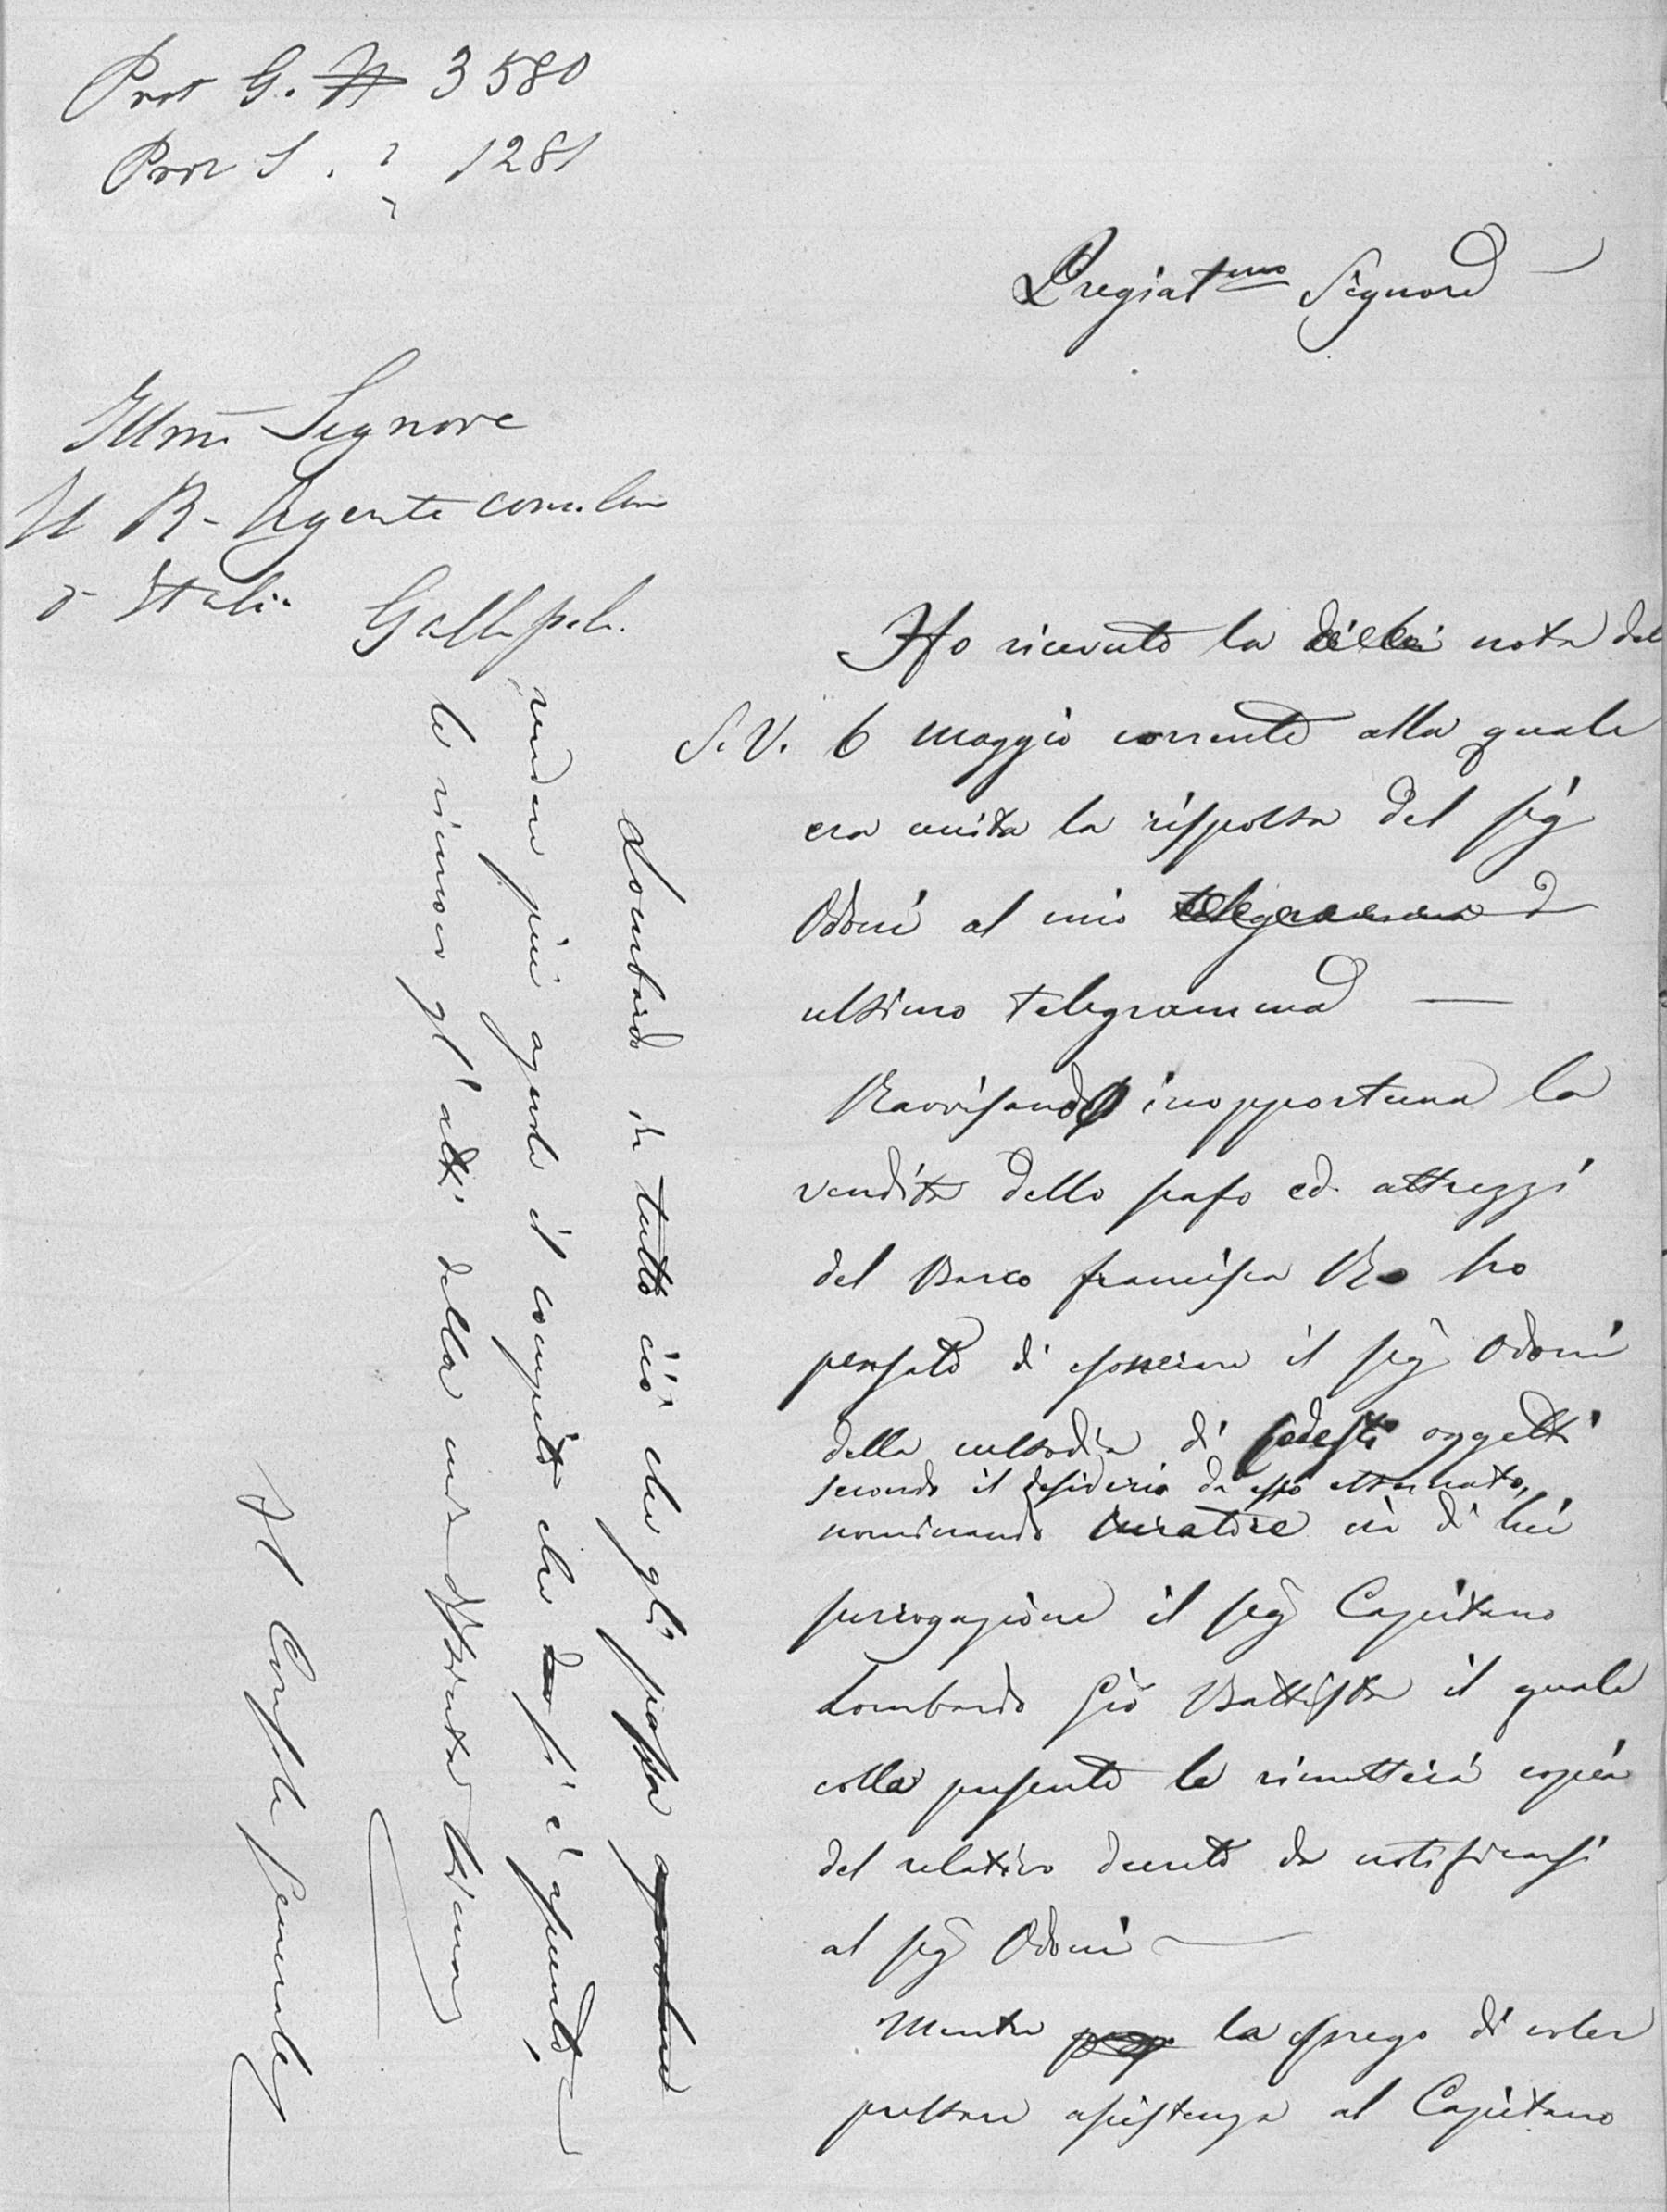 Prot G. N 3580
Prot S. " 1281
Pregiatmo Signore
Illmo Signore
Il R. Agente consolare
d'Italia Gallipoli
Ho ricevuto la di lei nota del
S. V. 6 Maggio corrente alla quale
era unita la risposta del sig
Odoni al mio telegramma
ultimo telegramma
Ravvisando inopportuna la
vendita dello scafo ed attrezzi
del Barco Francisca R ho
pensato di esonerare il sig Odoni
della custodia di codesti oggetti
secondo il desiderio da esso esternato,
nominando curatore in di lui
surrogazione il sig Capitano
Lombardo Gio Battista il quale
colla presente le rimetterà copia
del relativo decreto da notificarsi
al sig Odoni
Mentre la prego di voler
prestare assistenza al Capitano
Lombardo in tutto ciò che gli possa
rendere più agevole il compito che si è assunto,
le rinnovo gl'atti della mia distinta stima
Il Console Generale